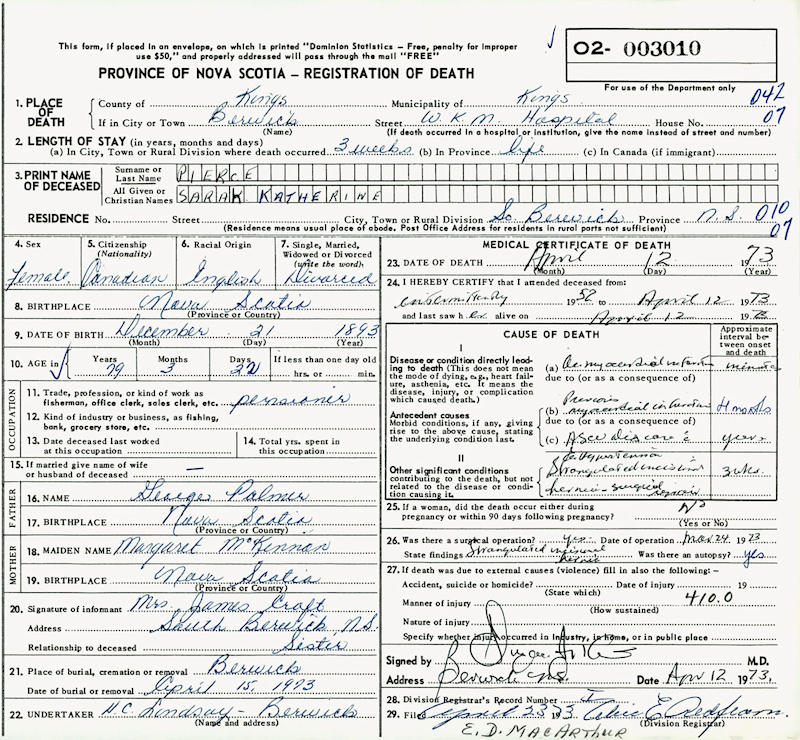 This form, if placed in an envelope, on which is printed "Dominion Statistics – Free, penalty for improper
use $50," and properly addressed will pass through the mail "FREE"
O2- 003010
PROVINCE OF NOVA SCOTIA – REGISTRATION OF DEATH
For use of the Department only
1. PLACE OF DEATH
County of Kings Municipality of Kings 042
If in City or Town Berwick Street W.K.M. Hospital House No. 07
(Name) (If death occurred in a hospital or institution, give the name instead of street and number)
2. LENGTH OF STAY (in years, months and days)
(a) In City, Town or Rural Division where death occurred 3 weeks (b) In Province life (c) In Canada (if immigrant)
3. PRINT NAME OF DECEASED
Surname or Last Name PIERCE
All Given or Christian Names SARAH KATHERINE
RESIDENCE No. Street City, Town or Rural Division So. Berwick Province N.S. 010
(Residence means usual place of abode. Post Office Address for residents in rural parts not sufficient) 07
4. Sex
Female
5. Citizenship (Nationality)
Canadian
6. Racial Origin
English
7. Single, Married, Widowed or Divorced (write the word)
Divorced
8. BIRTHPLACE Nova Scotia
(Province or Country)
9. DATE OF BIRTH December 21 1893
(Month) (Day) (Year)
10. AGE in Years 79 Months 3 Days 22 If less than one day old
hrs. or min.
OCCUPATION
11. Trade, profession, or kind of work as
fisherman, office clerk, sales clerk, etc. pensioner
12. Kind of industry or business, as fishing,
bank, grocery store, etc.
13. Date deceased last worked
at this occupation
14. Total yrs. spent in
this occupation
15. If married give name of wife
or husband of deceased —
FATHER
16. NAME George Palmer
17. BIRTHPLACE Nova Scotia
(Province or Country)
MOTHER
18. MAIDEN NAME Margaret McKinnon
19. BIRTHPLACE Nova Scotia
(Province or Country)
20. Signature of informant Mrs. James Croft
Address South Berwick N.S.
Relationship to deceased Sister
21. Place of burial, cremation or removal Berwick
Date of burial or removal April 15, 1973
22. UNDERTAKER H.C. Lindsay - Berwick
(Name and address)
MEDICAL CERTIFICATE OF DEATH
23. DATE OF DEATH April 12 1973
(Month) (Day) (Year)
24. I HEREBY CERTIFY that I attended deceased from:
intermittently 1952 to April 12 1973
and last saw her alive on April 12 1973
CAUSE OF DEATH
Approximate interval between onset and death
I
Disease or condition directly leading to death (This does not
mean the mode of dying, e.g., heart failure, asthenia, etc. It means the
disease, injury, or complication
which caused death.)
(a) Ac. myocardial infarction minutes
due to (or as a consequence of)
Antecedent causes
Morbid conditions, if any, giving
rise to the above cause, stating
the underlying condition last.
Previous
(b) myocardial infarction 4 months
due to (or as a consequence of)
(c) ASCV disease years
hypertension
II
Other significant conditions
contributing to the death, but not
related to the disease or condition causing it.
Strangulated incisional 3 wks.
hernia - surgical repair
25. If a woman, did the death occur either during
pregnancy or within 90 days following pregnancy? No
(Yes or No)
26. Was there a surgical operation? yes Date of operation Mar 24 1973
State findings Strangulated incisional hernia Was there an autopsy? yes
27. If death was due to external causes (violence) fill in also the following –
Accident, suicide or homicide? Date of injury 19
(State which)
Manner of injury 410.0
(How sustained)
Nature of injury
Specify whether injury occurred in industry, in home, or in public place
Signed by M.D.
Address Berwick N.S. Date Apr 12 1973.
28. Division Registrar's Record Number
29. Filed April 23 1973
(Division Registrar)
E. D. MACARTHUR